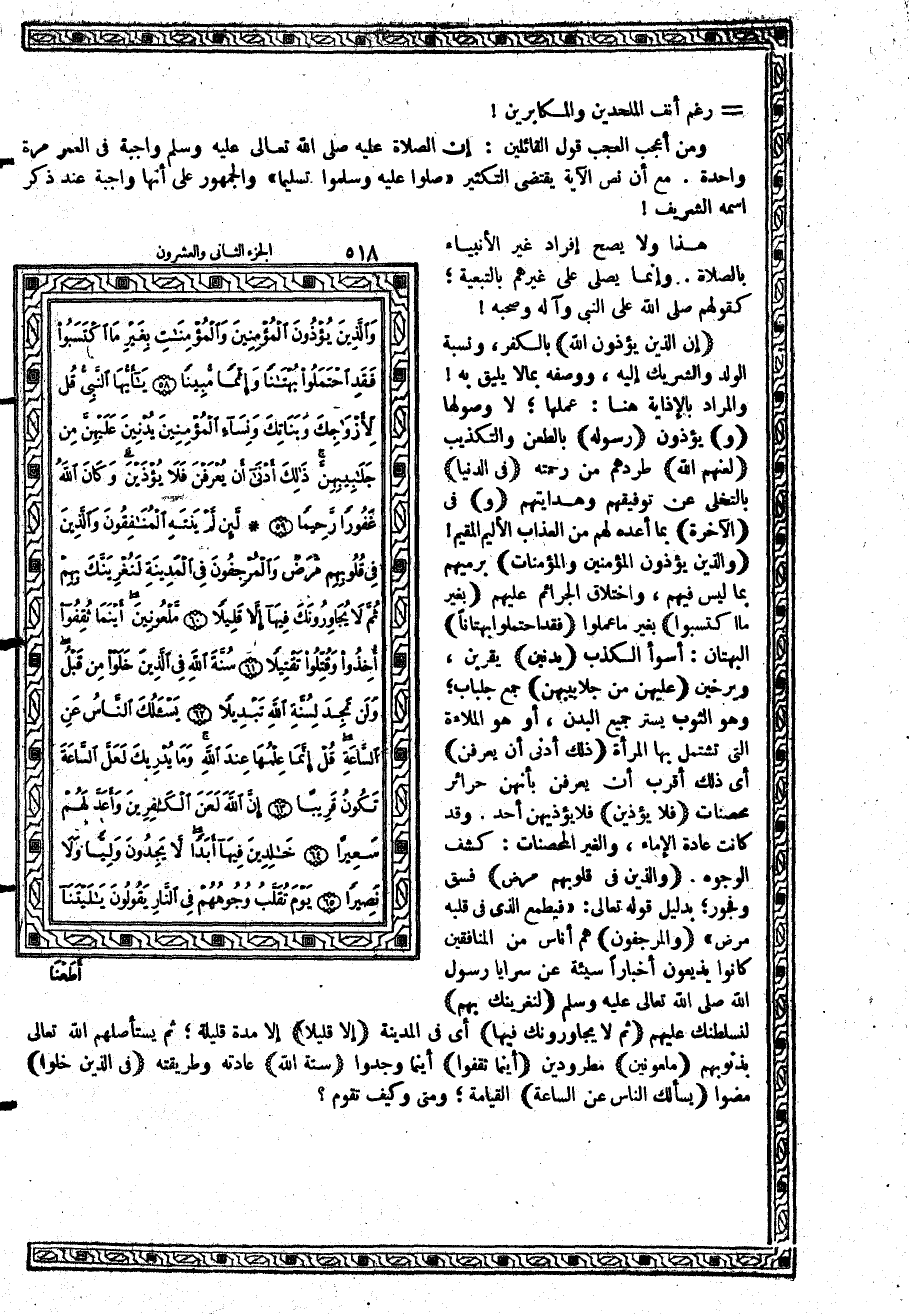 = رغم أنف الملحدين والمكابرين !
ومن أعجب العجب قول القائلين : إن الصلاة عليه صلى الله تعالى عليه وسلم واجبة فى العمر مرة
واحدة . مع أن نص الآية يقتضى التكثير «صلوا عليه وسلموا تسليما» والجمهور على أنها واجبة عند ذكر
اسمه الشريف !
هذا ولا يصح إفراد غير الأنبياء
بالصلاة . وإنما يصلى على غيرهم بالتبعية ؛
كقولهم صلى الله على النبى وآله وصحبه !
(إن الذين يؤذون الله) بالكفر ، ونسبة
الولد والشريك إليه ، ووصفه بمالا يليق به !
والمراد بالإذاية هنا : عملها ؛ لا وصولها
(و) يؤذون (رسوله) بالطعن والتكذيب
(لعنهم الله) طردهم من رحمته (فى الدنيا)
بالتخلى عن توفيقهم وهدايتهم (و) فى
(الآخرة) بما أعده لهم من العذاب الأليم المقيم!
(والذين يؤذون المؤمنين والمؤمنات) برميهم
بما ليس فيهم ، واختلاق الجرائم عليهم (بغير
ماا كتسبوا) بغير ماعملوا (فقداحتملوابهتاناً)
البهتان : أسوأ الكذب (يدنين) يقربن ،
ويرخين (عليهن من جلابيبهن) جمع جلباب؛
وهو الثوب يستر جميع البدن ، أو هو الملاءة
التى تشتمل بها المرأة (ذلك أدنى أن يعرفن)
أى ذلك أقرب أن يعرفن بأنهن حرائر
محصنات (فلا يؤذين) فلايؤذيهن أحد . وقد
كانت عادة الإماء ، والغير المحصنات : كشف
الوجوه . (والذين فى قلوبهم مرض) فسق
وفجور؛ بدليل قوله تعالى: «فيطمع الذى فى قلبه
مرض» (والمرجفون) هم أناس من المنافقين
كانوا يذيعون أخباراً سيئة عن سرايا رسول
الله صلى الله تعالى عليه وسلم (لنغرينك بهم)
لنسلطنك عليهم (ثم لا يجاورونك فيها) أى فى المدينة (إلا قليلا) إلا مدة قليلة ؛ ثم يستأصلهم الله تعالى
بذنوبهم (ملعونين) مطرودين (أينما ثقفوا) أينما وجدوا (سنة الله) عادته وطريقته (فى الذين خلوا)
مضوا (يسألك الناس عن الساعة) القيامة ؛ ومتى وكيف تقوم ؟
الجزء الثانى والعشرون ٥١٨
وَٱلَّذِينَ يُؤْذُونَ ٱلْمُؤْمِنِينَ وَٱلْمُؤْمِنَٰتِ بِغَيْرِ مَا ٱكْتَسَبُوا۟
فَقَدِ ٱحْتَمَلُوا۟ بُهْتَٰنًا وَإِثْمًا مُّبِينًا ۝٥٨ يَٰٓأَيُّهَا ٱلنَّبِىُّ قُل
لِّأَزْوَٰجِكَ وَبَنَاتِكَ وَنِسَآءِ ٱلْمُؤْمِنِينَ يُدْنِينَ عَلَيْهِنَّ مِن
جَلَٰبِيبِهِنَّ ۚ ذَٰلِكَ أَدْنَىٰٓ أَن يُعْرَفْنَ فَلَا يُؤْذَيْنَ ۗ وَكَانَ ٱللَّهُ
غَفُورًا رَّحِيمًا ۝٥٩ * لَّئِن لَّمْ يَنتَهِ ٱلْمُنَٰفِقُونَ وَٱلَّذِينَ
فِى قُلُوبِهِم مَّرَضٌ وَٱلْمُرْجِفُونَ فِى ٱلْمَدِينَةِ لَنُغْرِيَنَّكَ بِهِمْ
ثُمَّ لَا يُجَاوِرُونَكَ فِيهَآ إِلَّا قَلِيلًا ۝٦٠ مَّلْعُونِينَ ۖ أَيْنَمَا ثُقِفُوٓا۟
أُخِذُوا۟ وَقُتِّلُوا۟ تَقْتِيلًا ۝٦١ سُنَّةَ ٱللَّهِ فِى ٱلَّذِينَ خَلَوْا۟ مِن قَبْلُ ۖ
وَلَن تَجِدَ لِسُنَّةِ ٱللَّهِ تَبْدِيلًا ۝٦٢ يَسْـَٔلُكَ ٱلنَّاسُ عَنِ
ٱلسَّاعَةِ ۖ قُلْ إِنَّمَا عِلْمُهَا عِندَ ٱللَّهِ ۚ وَمَا يُدْرِيكَ لَعَلَّ ٱلسَّاعَةَ
تَكُونُ قَرِيبًا ۝٦٣ إِنَّ ٱللَّهَ لَعَنَ ٱلْكَٰفِرِينَ وَأَعَدَّ لَهُمْ
سَعِيرًا ۝٦٤ خَٰلِدِينَ فِيهَآ أَبَدًا ۖ لَّا يَجِدُونَ وَلِيًّا وَلَا
نَصِيرًا ۝٦٥ يَوْمَ تُقَلَّبُ وُجُوهُهُمْ فِى ٱلنَّارِ يَقُولُونَ يَٰلَيْتَنَآ
أَطَعْنَا